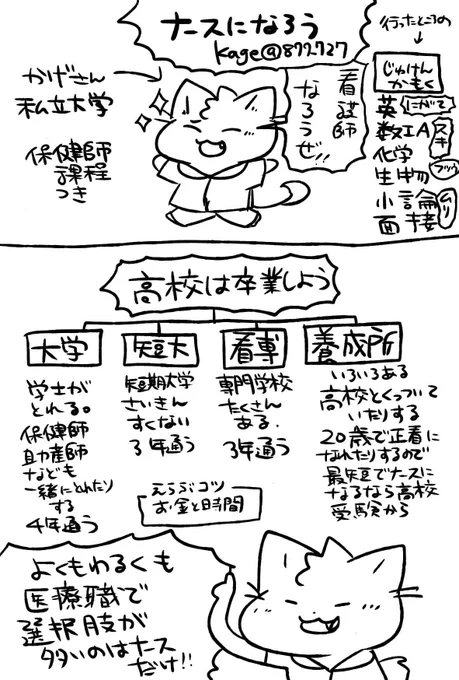 ナースになろう
kage@877727
看護師
なろうぜ!!
かげさん
私立大学
保健師
課程
つき
行ったところの
↓
じゅけん
かもく
英 にがて
数ⅠA スキ
化学
生物 フツウ
小論 ムリ
面接
高校は卒業しよう
大学
学士が
とれる。
保健師
助産師
なども
一緒にとれたり
する
4年通う
短大
短期大学
さいきん
すくない
3年通う
看専
専門学校
たくさん
ある.
3年通う
養成所
いろいろある
高校とくっついて
いたりする
20歳で正看に
なれたりするので
最短でナースに
なるなら高校
受験から
えらぶコツ
お金と時間
よくもわるくも
医療職で
選択肢が
多いのはナース
だけ!!